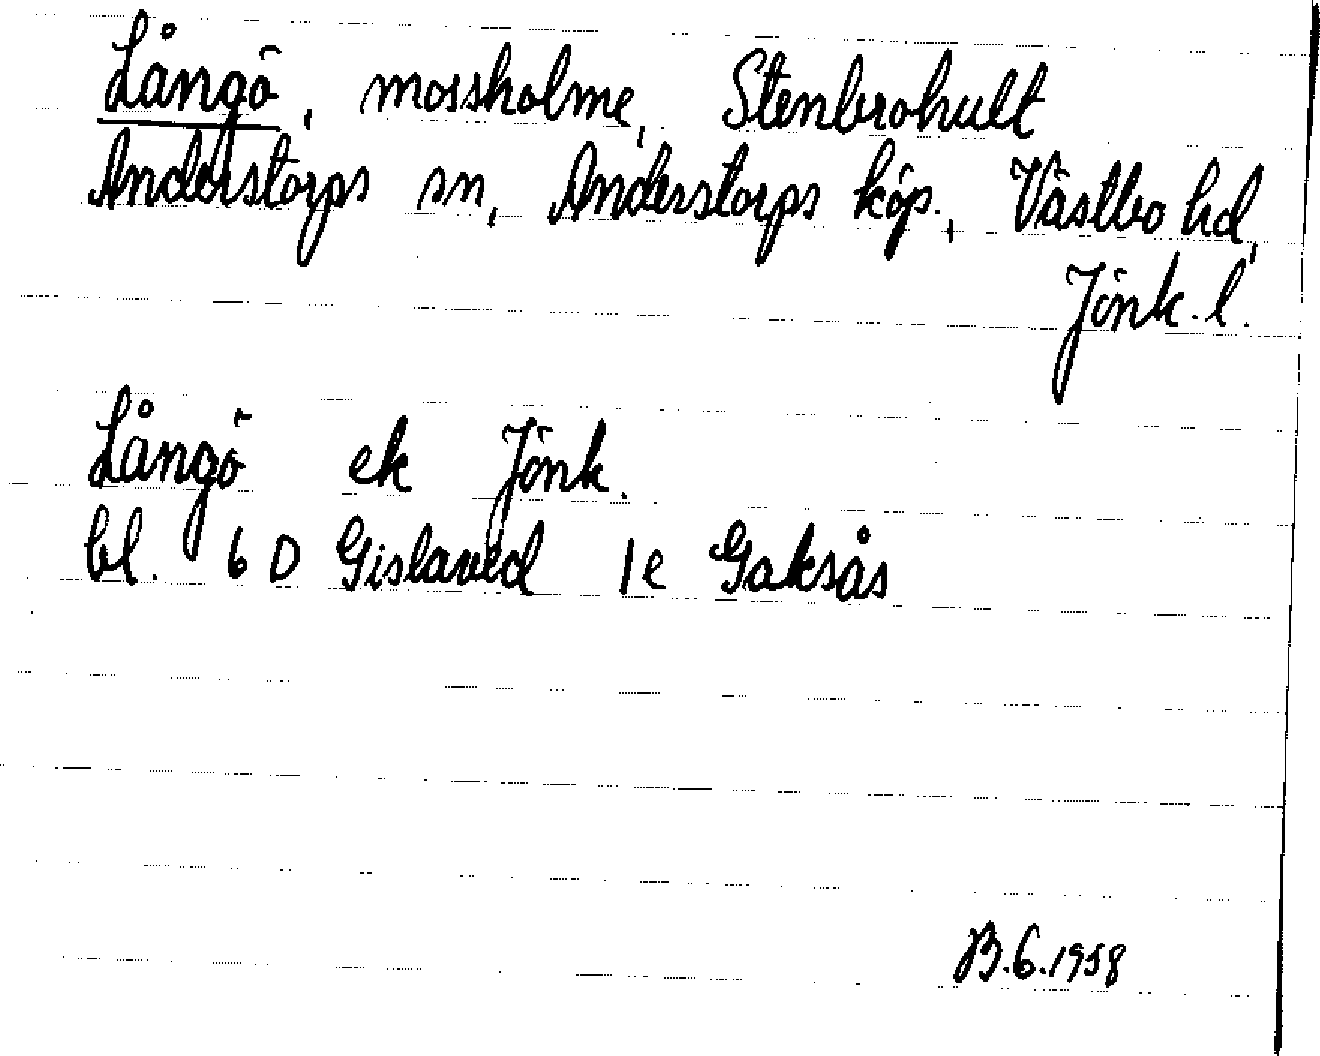 Långö, mossholme, Stenbrohult
Anderstorps sn, Anderstorps köp., Västbo hd,
Jönk. l.
Långö ek Jönk.
bl. 6 D Gislaved 1e Gaksås
B.6.1958